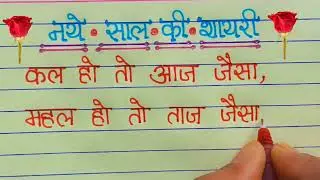 नये साल की शायरी
कल हो तो आज जैसा,
महल हो तो ताज जैसा,